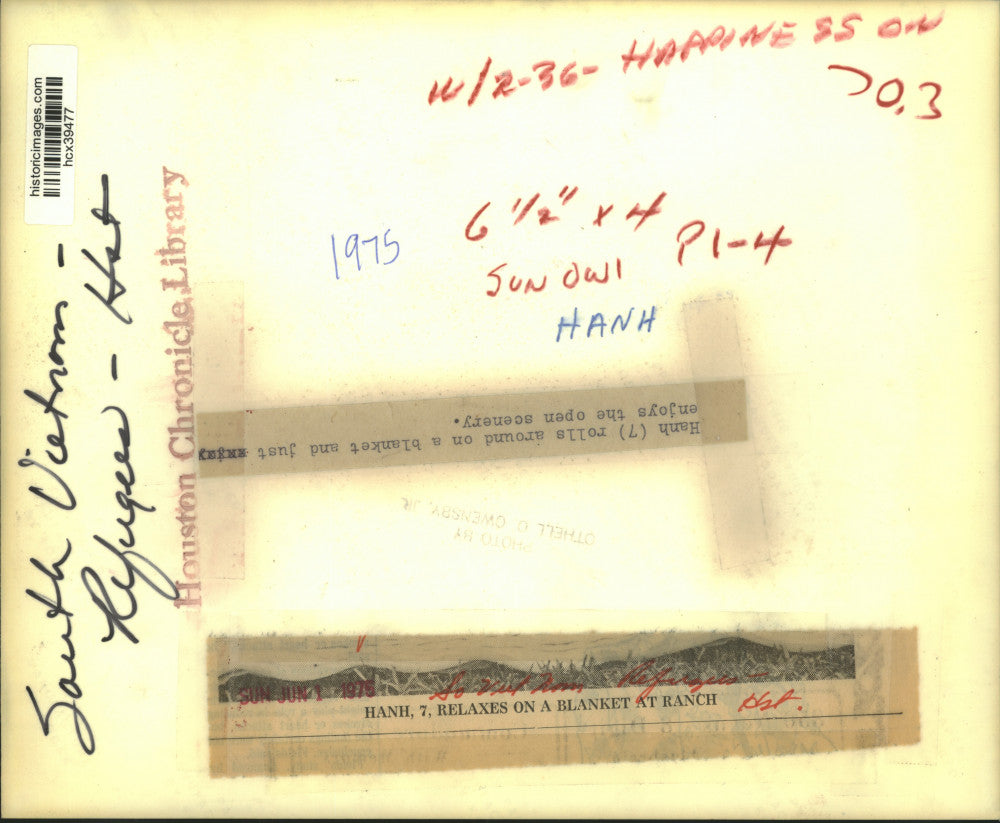 historicimages.com
hcx39477
South Vietnam -
Refugees - Hst
Houston Chronicle Library
W/2-36- HAPPINESS ON
70.3
1975
6 1/2" x 4
P1-4
SUN OWI
HANH
Hanh (7) rolls around on a blanket and just
enjoys the open scenery.
PHOTO BY
OTHELL O OWENSBY, JR.
SUN JUN 1 1975
So Viet Nam Refugees -
Hst.
HANH, 7, RELAXES ON A BLANKET AT RANCH